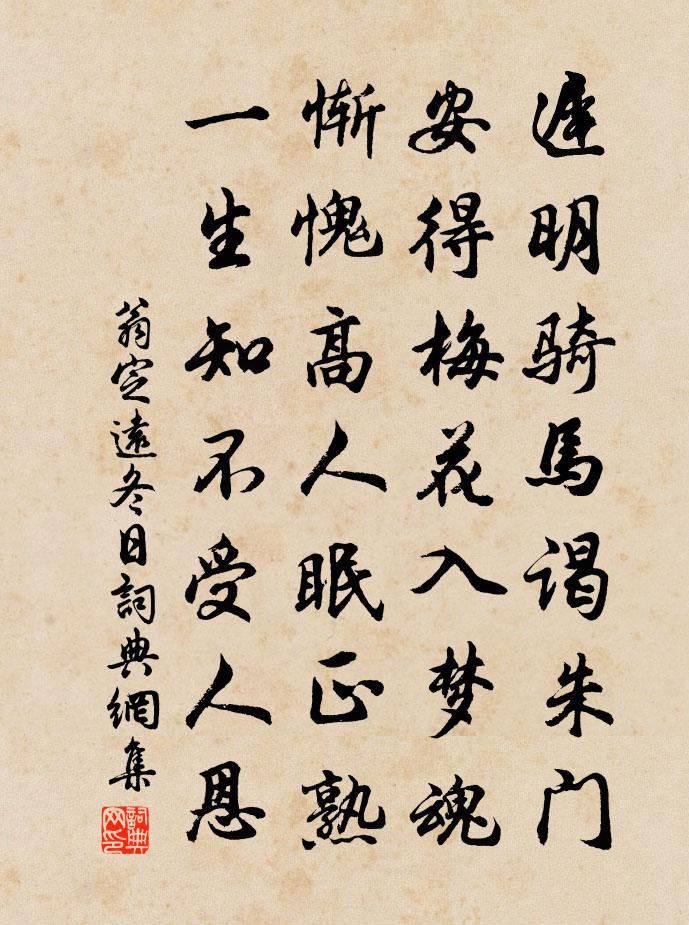 遲明騎馬谒朱门
安得梅花入梦魂
慚愧高人眠正熟
一生知不受人恩
翁定遠冬日詞典網集
詞典网印